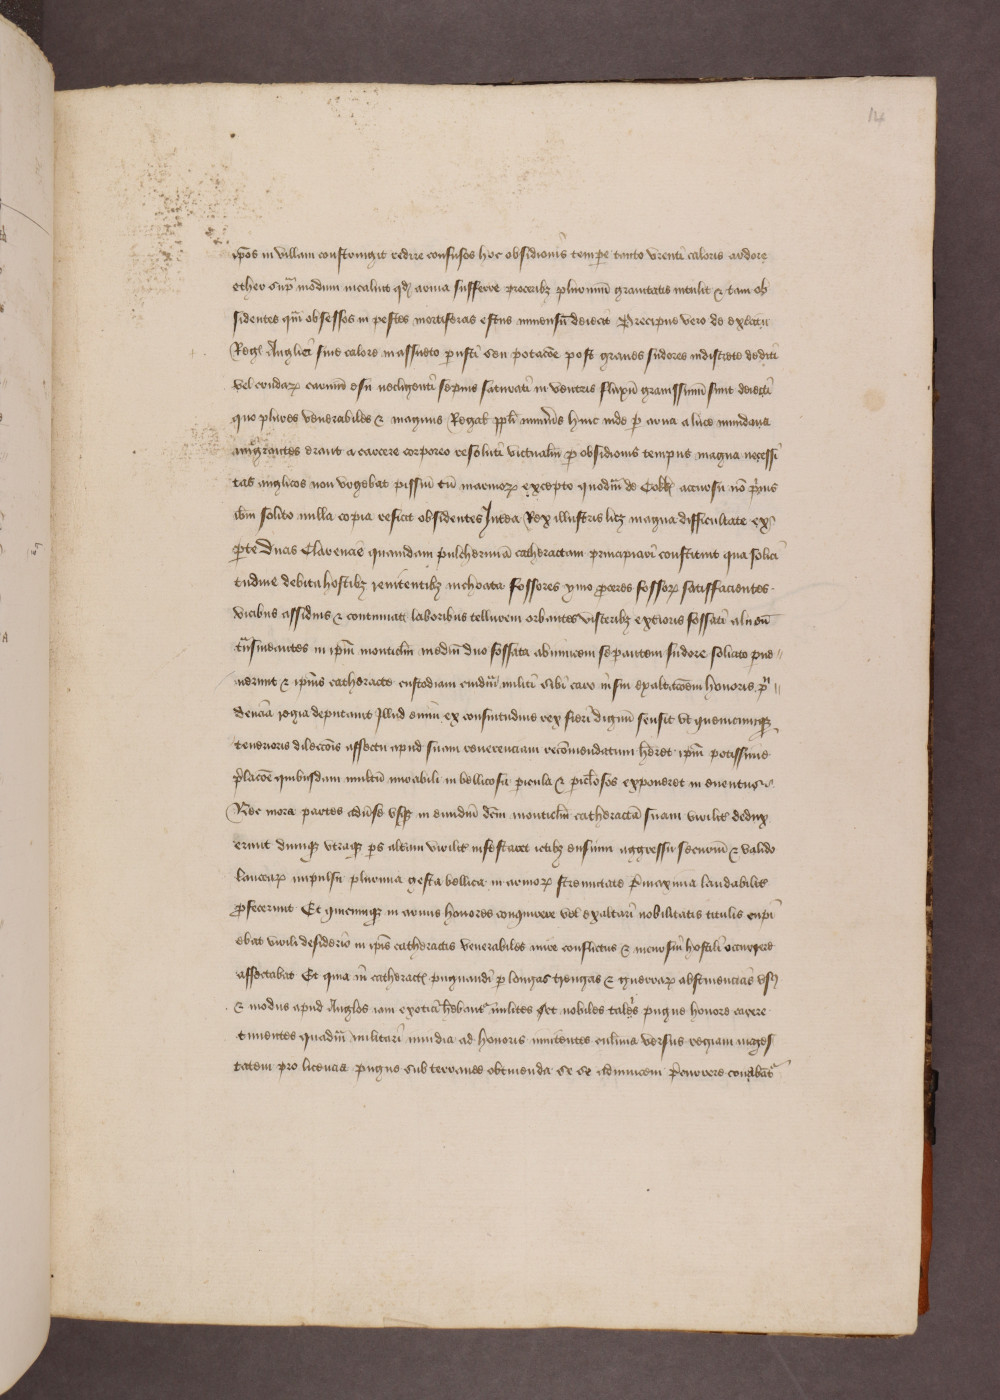 14
ip̄os in villam constringit redire confusos hoc obsidionis temp̄e tanto vrenti caloris ardore
ether sup̄ modum incaluit qd̄ arma sufferre proceribȝ plurimū grauitatis intulit & tam ob
sidentes qm̄ obsessos in pestes mortiferas estus inmensū deiecit Precipue vero de ex̄citu
Reḡ Anglici siue calore inassueto p̄usti seu potac̄oe post graues sudores indiscrete dediti
vel crudarꝝ carniū esu necligenti sepius saturati in ventris fluxū grauissimū sunt deiecti
quo plures venerabiles & magnus Regał pp̄li num̄us hinc inde p̄ arua a luce mundana
migrantes erant a carcere corporeo resoluti victualiū p̄ obsidionis tempus magna necessi
tas anglicos non vrgebat pissiū tn̄ marinorꝝ excepto quodm̄ de aceruosu nō prius
ib̄m solito nulla copia reficit obsidentes Interea Rex illustris licȝ magna difficultate ex
p̄te Ducis Clarencie quamdam pulcherrimā catheractam principiari constituit qua solici
tudine debita hostibȝ renitentibȝ inchoata fossores ymo p̄ceres fossorꝝ satisfacientes
vicibus assiduis & continuatꝭ laboribus tellurem orbantes visceribȝ ext̄ioris fossati alueū
tn̄smeantes in ip̄m monticlm̄ mediū duo fossata abinuicem sepantem sudore solicito p̄ue
nerunt & ip̄ius catheracte custodiam cuidm̄ militi sibi caro in sui exaltac̄oem honoris p̄u
dencia regia deputauit Illud enim ex consuetudine rex fieri dignū sensit vt quemcumqȝ
tenerioris dilecc̄ois affectu apud suam reuerenciam recōmendatum h̄eret ip̄m potissime
p̄lac̄oe quibusdam multū in bellicosū pericula & piclosos exponeret in euentus
Nec mora partes adūse vsqȝ in eundm̄ dc̄m monticlm̄ catheractā suam virilit̄ dedux
erunt dumqȝ vtraqȝ ps̄ alt̄ram virilit̄ infestaret ictibȝ ensium aggressu securiū & valido
lancearꝝ impulsu plurima gesta bellica in armorꝝ strenuitate p̄maxima laudabilit̄
p̄fecerunt Et quicumqȝ in armis honores conquirere vel exaltari nobilitatis titulis cupi
ebat virili desiderio in ip̄is catheractis venerabilit̄ inire conflictus & incursui hostili occurrere
affectabat Et quia in catheractꝭ pugnandi p̄ longas treugas & guerrarꝝ abstinencias vsꝰ
& modus apud Anglos iam exotici h̄ebant̄ milites set nobiles talis pugne honore carere
timentes quadm̄ militari inuidia ad honoris nitentes culmina versus regiam maies
tatem pro licencia pugne subterranee obtinenda se se adinuicem p̄currere conabāt̄